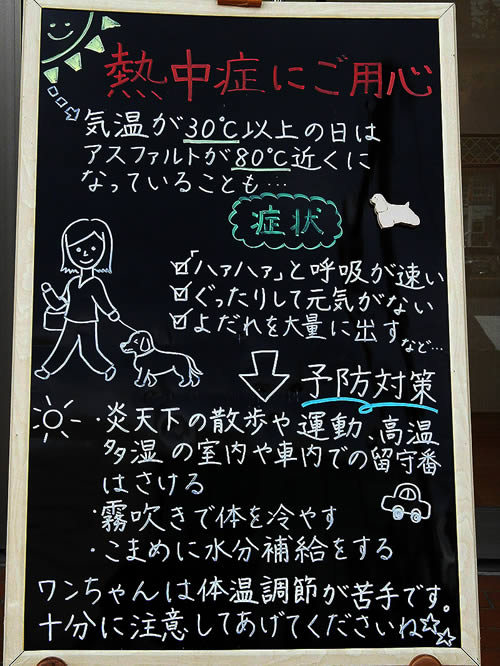 熱中症にご用心
気温が30℃以上の日は
アスファルトが80℃近くに
なっていることも…
症状
☑「ハァハァ」と呼吸が速い
☑ぐったりして元気がない
☑よだれを大量に出す
など…
予防対策
・炎天下の散歩や運動、高温
多湿の室内や車内での留守番
はさける
・霧吹きで体を冷やす
・こまめに水分補給をする
ワンちゃんは体温調節が苦手です。
十分に注意してあげてくださいね☆☆